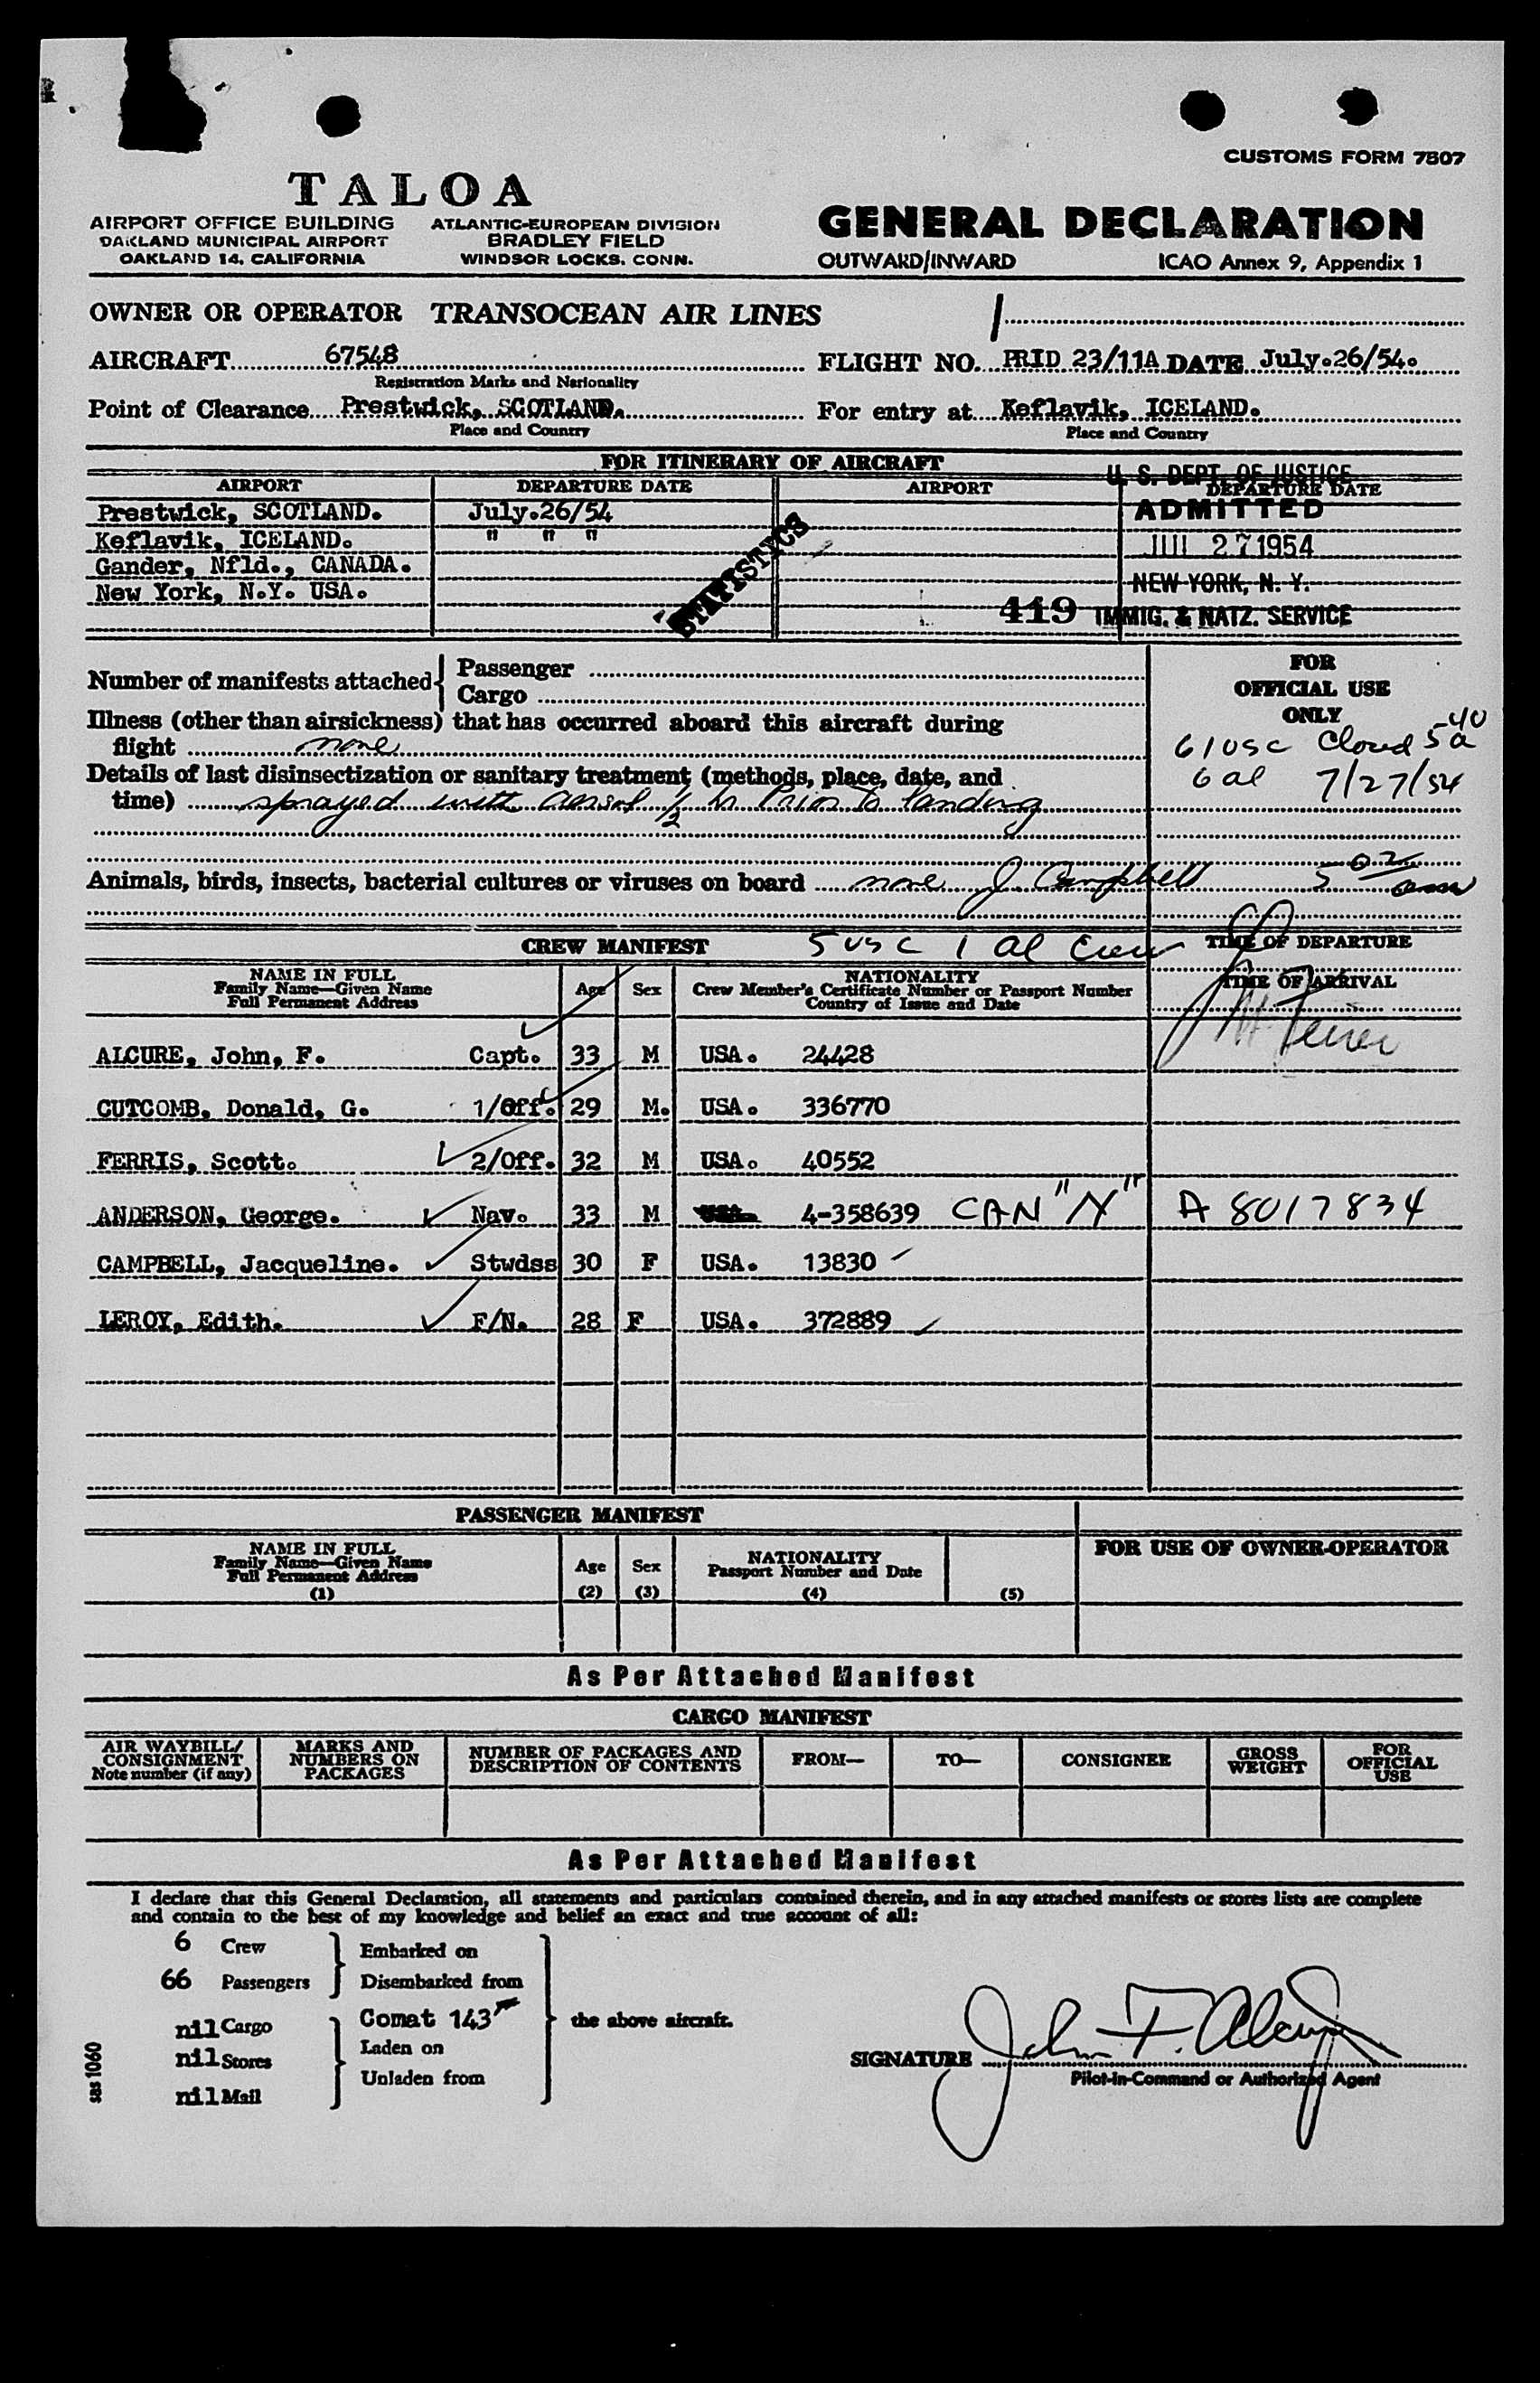 CUSTOMS FORM 7507
TALOA
AIRPORT OFFICE BUILDING
OAKLAND MUNICIPAL AIRPORT
OAKLAND 14, CALIFORNIA
ATLANTIC-EUROPEAN DIVISION
BRADLEY FIELD
WINDSOR LOCKS. CONN.
GENERAL DECLARATION
OUTWARD/INWARD ICAO Annex 9, Appendix 1
OWNER OR OPERATOR TRANSOCEAN AIR LINES
AIRCRAFT 67548 FLIGHT NO. PRID 23/11A DATE July.26/54.
Registration Marks and Nationality
Point of Clearance Prestwick, SCOTLAND. For entry at Keflavik, ICELAND.
Place and Country Place and Country
FOR ITINERARY OF AIRCRAFT
AIRPORT DEPARTURE DATE AIRPORT DEPARTURE DATE
Prestwick, SCOTLAND. July.26/54
Keflavik, ICELAND. " " "
Gander, Nfld., CANADA.
New York, N.Y. USA.
STATISTICS
U. S. DEPT. OF JUSTICE
ADMITTED
JUL 27 1954
NEW YORK, N. Y.
419 IMMIG. & NATZ. SERVICE
Number of manifests attached { Passenger
Cargo
FOR
OFFICIAL USE
ONLY
Illness (other than airsickness) that has occurred aboard this aircraft during
flight none
61 USC Closed 5 40 a
6 al 7/27/54
Details of last disinsectization or sanitary treatment (methods, place, date, and
time) sprayed with aerosol 1/2 hr Prior To landing
Animals, birds, insects, bacterial cultures or viruses on board none J Campbell
CREW MANIFEST 5 USC 1 al Crew
TIME OF DEPARTURE
TIME OF ARRIVAL
NAME IN FULL
Family Name—Given Name
Full Permanent Address
Age Sex
NATIONALITY
Crew Member's Certificate Number or Passport Number
Country of Issue and Date
ALCURE, John, F. Capt. 33 M USA. 24428
CUTCOMB, Donald, G. 1/Off. 29 M. USA. 336770
FERRIS, Scott. 2/Off. 32 M USA. 40552
ANDERSON, George. Nav. 33 M 4-358639 CAN "N" A 8017834
CAMPBELL, Jacqueline. Stwdss 30 F USA. 13830
LEROY, Edith. F/N. 28 F USA. 372889
PASSENGER MANIFEST
NAME IN FULL
Family Name—Given Name
Full Permanent Address
(1)
Age
(2)
Sex
(3)
NATIONALITY
Passport Number and Date
(4)
(5)
FOR USE OF OWNER-OPERATOR
As Per Attached Manifest
CARGO MANIFEST
AIR WAYBILL/
CONSIGNMENT
Note number (if any)
MARKS AND
NUMBERS ON
PACKAGES
NUMBER OF PACKAGES AND
DESCRIPTION OF CONTENTS
FROM—
TO—
CONSIGNEE
GROSS
WEIGHT
FOR
OFFICIAL
USE
As Per Attached Manifest
I declare that this General Declaration, all statements and particulars contained therein, and in any attached manifests or stores lists are complete
and contain to the best of my knowledge and belief an exact and true account of all:
6 Crew
66 Passengers
Embarked on
Disembarked from
nil Cargo
nil Stores
nil Mail
Comat 143
Laden on
Unladen from
the above aircraft.
SIGNATURE John F. Alcure
Pilot-in-Command or Authorized Agent
sas 1060